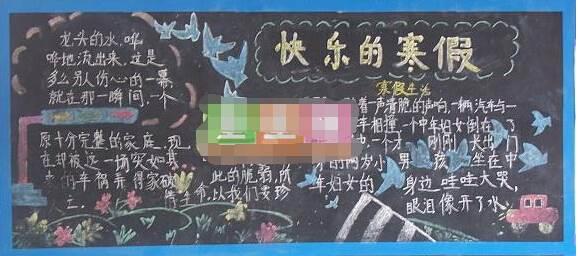 快乐的寒假
寒假生活
着一声清脆的声响,一辆汽车与一
车相撞,一个中年妇女倒在了
中,一个才刚刚大出门
的两岁小男孩,坐在中
年妇女的身边哇哇大哭,
眼泪像开了水
龙头的水,哗
哗地流出来,这是
多么别人伤心的一幕,
就在那一瞬间,一个
原十分完整的家庭,现
在却被这一场突如其
来的车祸弄得家破
亡.
此的脆弱,所
生命,以我们要珍